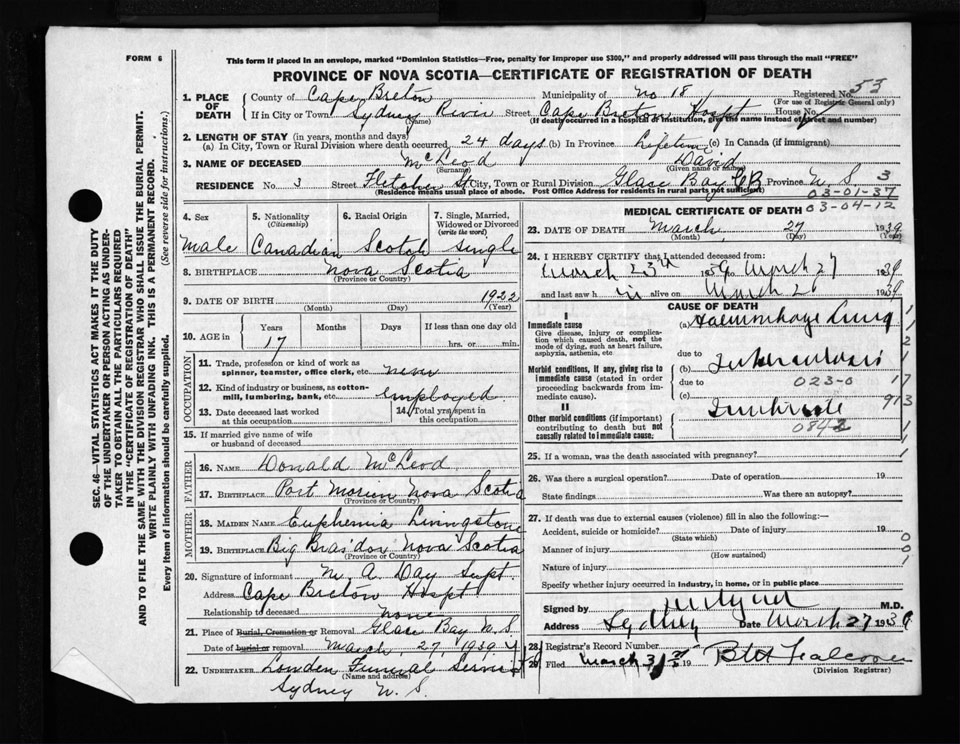 FORM 6
This form if placed in an envelope, marked "Dominion Statistics—Free, penalty for improper use $300," and properly addressed will pass through the mail "FREE"
PROVINCE OF NOVA SCOTIA—CERTIFICATE OF REGISTRATION OF DEATH
SEC. 46—VITAL STATISTICS ACT MAKES IT THE DUTY
OF THE UNDERTAKER OR PERSON ACTING AS UNDER-
TAKER TO OBTAIN ALL THE PARTICULARS REQUIRED
IN THE "CERTIFICATE OF REGISTRATION OF DEATH"
AND TO FILE THE SAME WITH THE DIVISION REGISTRAR WHO SHALL ISSUE THE BURIAL PERMIT.
WRITE PLAINLY WITH UNFADING INK. THIS IS A PERMANENT RECORD.
Every item of information should be carefully supplied. (See reverse side for instructions.)
1. PLACE OF DEATH County of Cape Breton Municipality of No 18 Registered No. 53
(For use of Registrar General only)
If in City or Town Sydney River Street Cape Breton Hospt House No.
(Name) (If death occurred in a hospital or institution, give the name instead of street and number)
2. LENGTH OF STAY (in years, months and days)
(a) In City, Town or Rural Division where death occurred 24 days (b) In Province Lifetime (c) In Canada (if immigrant)
3. NAME OF DECEASED McLeod David
(Surname) (Given name or names)
RESIDENCE No. 3 Street Fletcher St City, Town or Rural Division Glace Bay CB Province N S 3
(Residence means usual place of abode. Post Office Address for residents in rural parts not sufficient)
03-01-37
4. Sex Male
5. Nationality (Citizenship) Canadian
6. Racial Origin Scotch
7. Single, Married, Widowed or Divorced (write the word) Single
8. BIRTHPLACE Nova Scotia
(Province or Country)
9. DATE OF BIRTH 1922
(Month) (Day) (Year)
10. AGE in Years Months Days If less than one day old
17 hrs. or min.
OCCUPATION
11. Trade, profession or kind of work as spinner, teamster, office clerk, etc. never
12. Kind of industry or business, as cotton-mill, lumbering, bank, etc. employed
13. Date deceased last worked at this occupation
14. Total yrs. spent in this occupation
15. If married give name of wife or husband of deceased
FATHER
16. NAME Donald McLeod
17. BIRTHPLACE Port Morien Nova Scotia
(Province or Country)
MOTHER
18. MAIDEN NAME Euphemia Livingstone
19. BIRTHPLACE Big Bras'dor Nova Scotia
(Province or Country)
20. Signature of informant M. A. Day Supt.
Address Cape Breton Hospt
Relationship to deceased none
21. Place of Burial, Cremation or Removal Glace Bay N. S.
Date of burial or removal March, 27, 1939
22. UNDERTAKER Lowden Funeral Service
(Name and address)
Sydney N. S.
MEDICAL CERTIFICATE OF DEATH 03-04-12
23. DATE OF DEATH March, 27 1939
(Month) (Day) (Year)
24. I HEREBY CERTIFY that I attended deceased from:
March 23rd 1939 to March 27 1939
and last saw him alive on March 1939
CAUSE OF DEATH
I
Immediate cause
Give disease, injury or complication which caused death, not the mode of dying, such as heart failure, asphyxia, asthenia, etc
(a) Haemorrhage Lung
due to
Morbid conditions, if any, giving rise to immediate cause (stated in order proceeding backwards from immediate cause).
(b) Tuberculosis
due to 023-0
(c)
II
Other morbid conditions (important) contributing to death but not causally related to immediate cause.
25. If a woman, was the death associated with pregnancy?
26. Was there a surgical operation? Date of operation 19
State findings Was there an autopsy?
27. If death was due to external causes (violence) fill in also the following:—
Accident, suicide or homicide? Date of injury 19
(State which)
Manner of injury
(How sustained)
Nature of injury
Specify whether injury occurred in industry, in home, or in public place
Signed by M.D.
Address Sydney Date March 27 1939
28. Registrar's Record Number
29. Filed March 31 19
(Division Registrar)